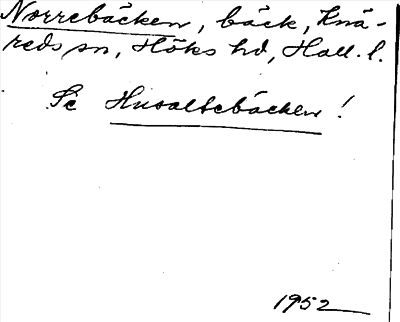 Norrebäcken, bäck, Knä-
reds sn, Höks hd, Hall. l.
Se Husaltebäcken!
1952